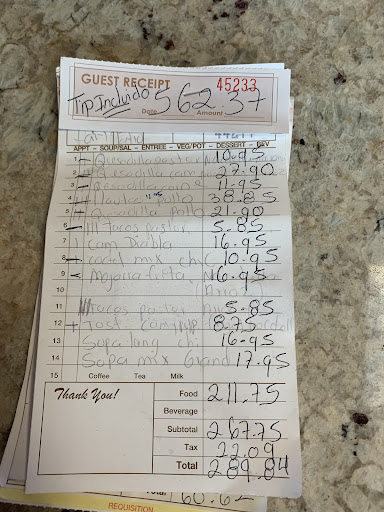 GUEST RECEIPT 45233
Tip Incluido 562.37
Date Amount
APPT - SOUP/SAL - ENTREE - VEG/POT - DESSERT - BEV
1 Quesadilla pastor 10.95
2 Quesadilla cam 27.90
3 Quesadilla carne 11.95
4 pollo 38.85
5 Quesadilla Pollo 21.90
6 Tacos pastor 5.85
7 Cam Diabla 16.95
8 coctel mix chi 10.95
9 Mojarra frita 16.95
10 Arroz
11 Tacos pastor 5.85
12 Tost Cam 8.75
13 Sopa lang chi 16.95
14 Sopa mix Grand 17.95
15 Coffee Tea Milk
Thank You!
Food 211.75
Beverage
Subtotal 267.75
Tax 22.09
Total 289.84
Total 60.62
REQUISITION